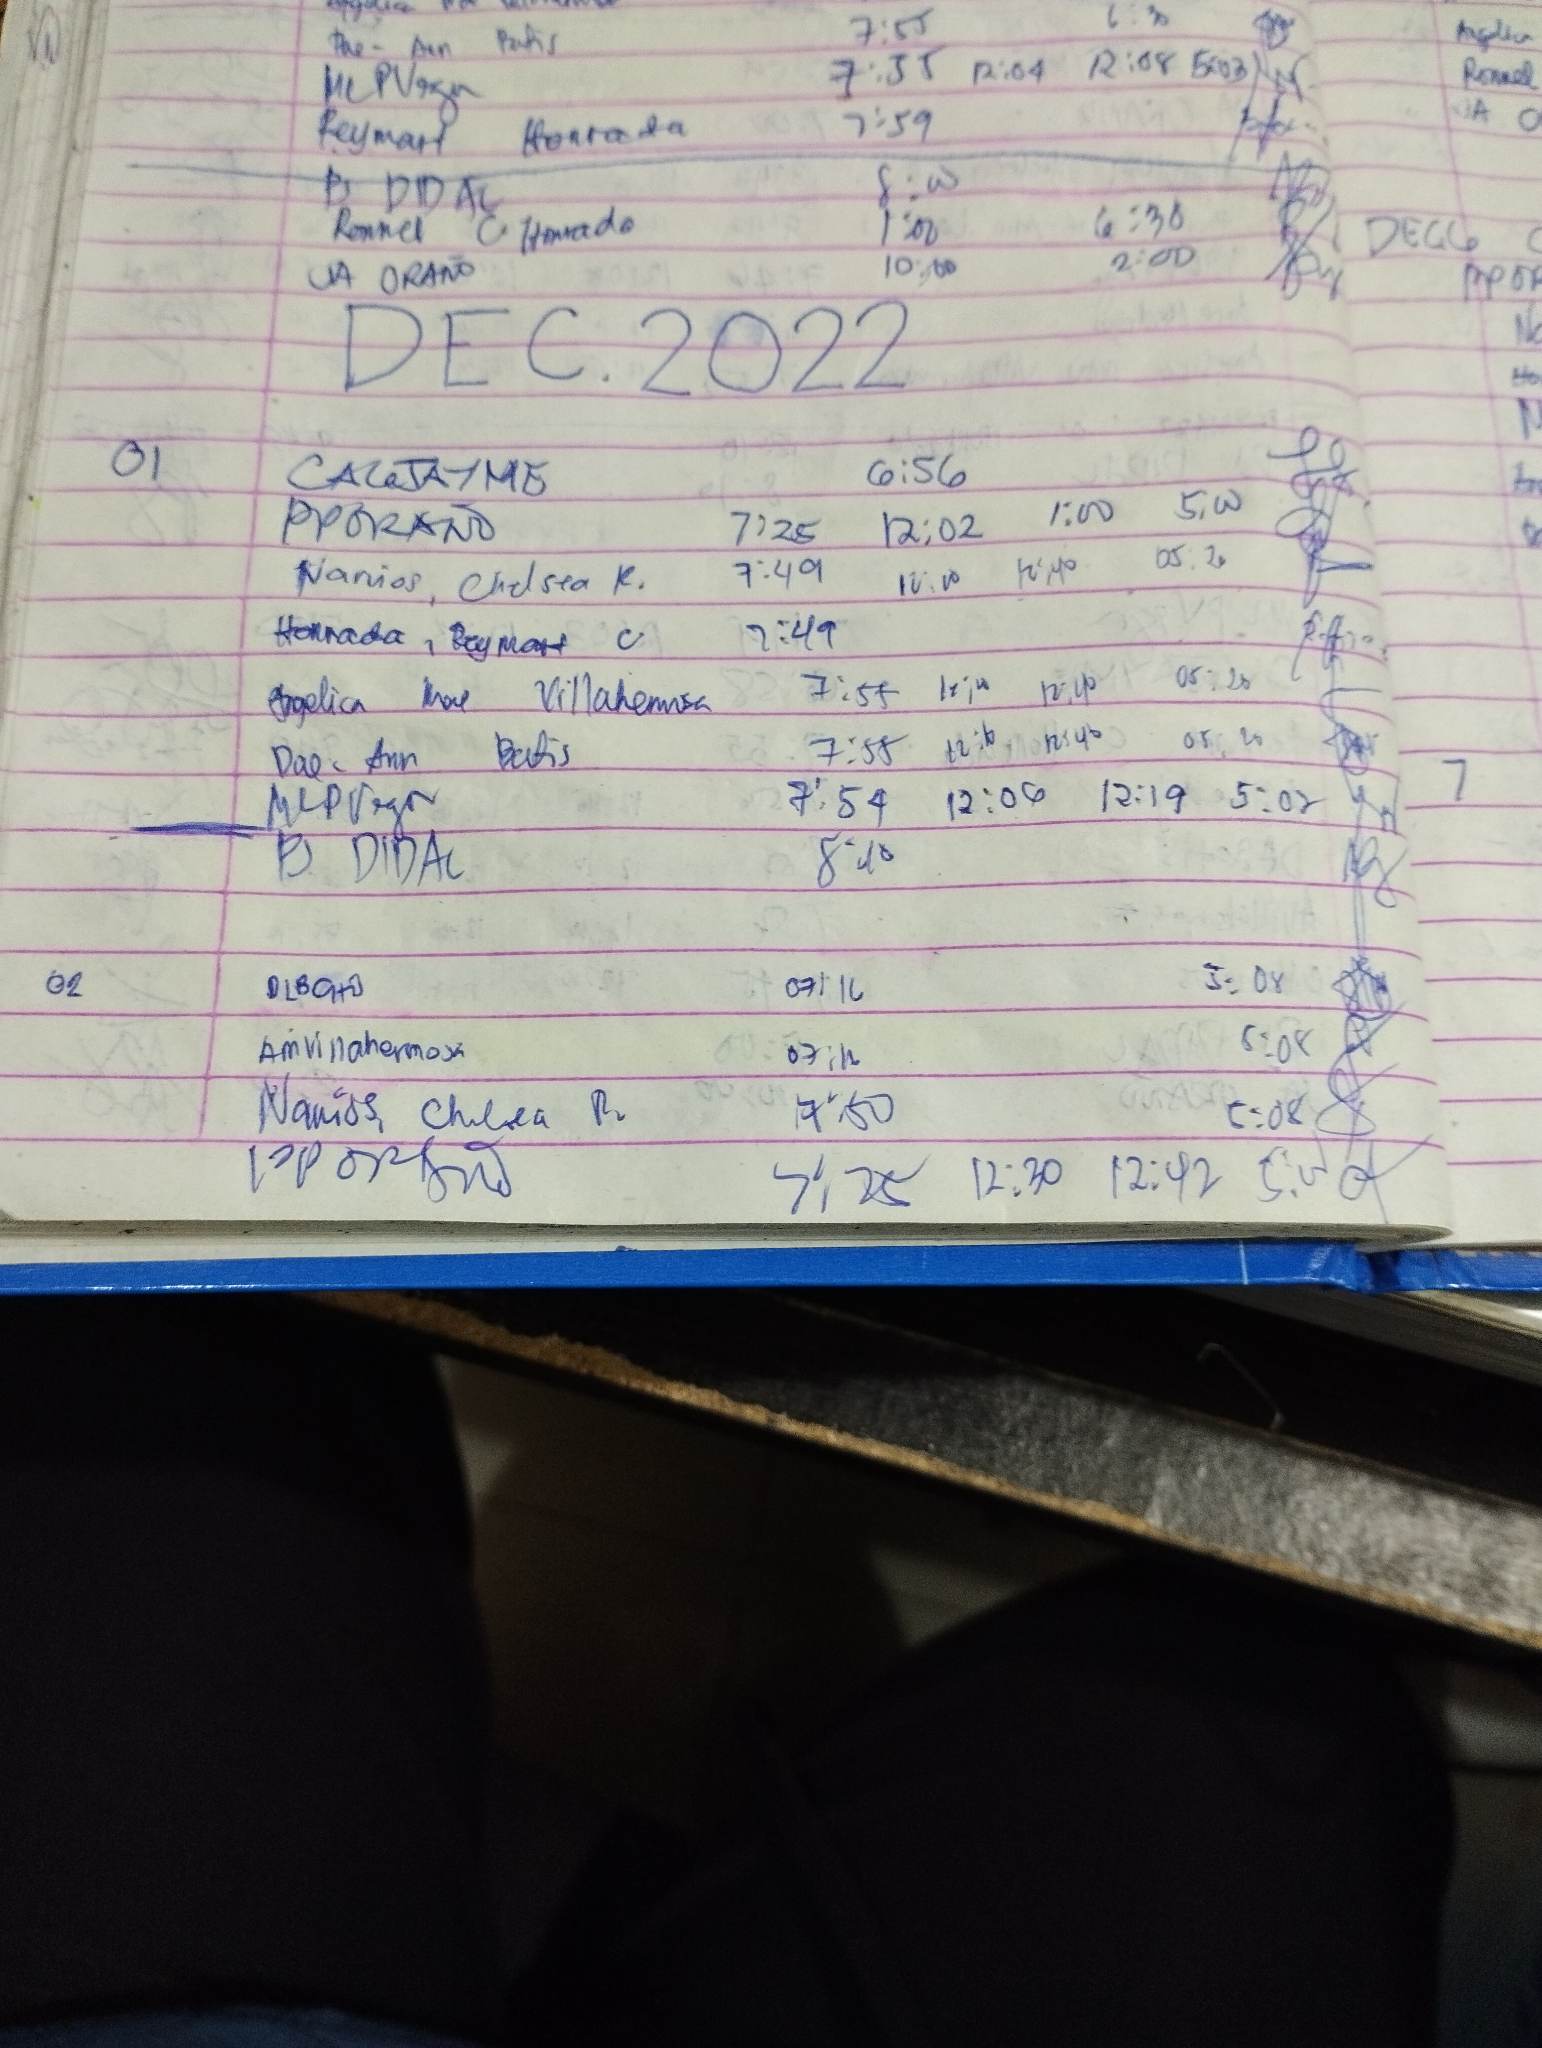 Dae-Ann Batis 7:55 6:30
MLPVegor 7:55 12:04 12:08 5:03
Reymart Honrada 7:59
B DIDAL 8:00
Ronnel C Honrado 1:00 6:30
JA ORAÑO 10:00 2:00
DEC. 2022
01 CAGJAYME 6:56
PPORAÑO 7:25 12:02 1:00 5:00
Nanios, Chelsea R. 7:49 12:10 12:40 05:20
Honrada, Reymart C 7:49
Angelica Mae Villahermosa 7:55 12:10 12:40 05:20
Dae-Ann Batis 7:55 12:10 12:40 05:20
MLPVegor 7:54 12:06 12:19 5:02
B. DIDAL 8:10
02 07:16 5:08
AmVillahermosa 07:16 5:08
Nanios, Chelsea R. 7:50 5:08
PPORAÑO 7:25 12:30 12:42
Angelica
Ronnel
JA O
DEC6
PPOR
7